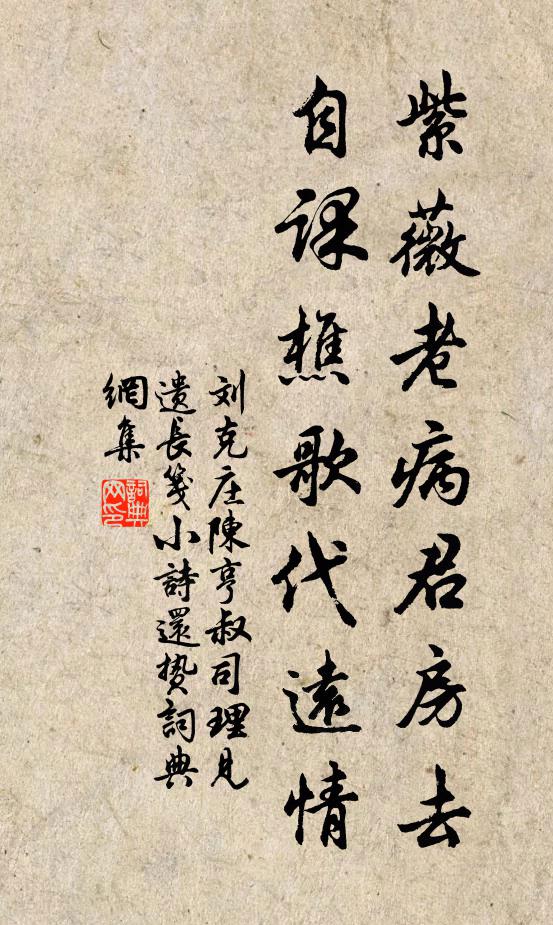 紫薇老病君房去
自課樵歌代遠情
刘克庄陳亨叔司理見
遗長箋小詩還贽詞典
網集
詞典网印